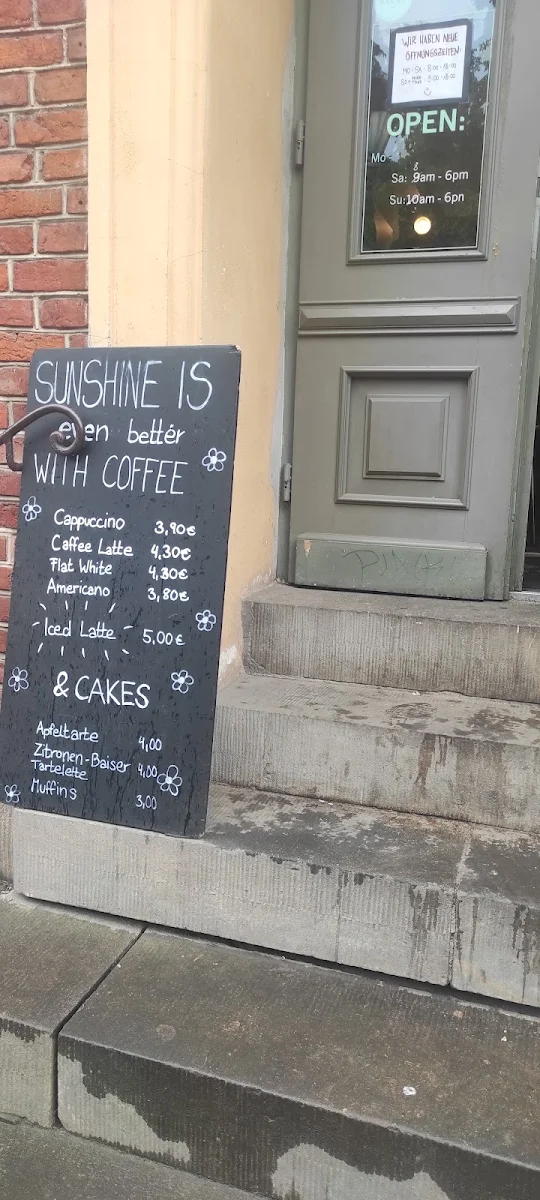 WIR HABEN NEUE
ÖFFNUNGSZEITEN:
MO - SA - 8:00 - 18:00
OPEN:
Mo -
Sa: 9am - 6pm
Su:10am - 6pm
SUNSHINE IS
even better
WITH COFFEE
Cappuccino 3,90€
Caffee Latte 4,30€
Flat White 4,30€
Americano 3,80€
Iced Latte 5,00€
& CAKES
Apfeltarte 4,00
Zitronen-Baiser
Tartelette 4,00
Muffins 3,00